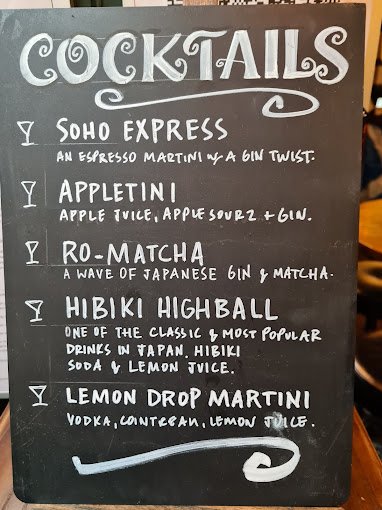 COCKTAILS
SOHO EXPRESS
AN ESPRESSO MARTINI w/ A GIN TWIST.
APPLETINI
APPLE JUICE, APPLE SOURZ + GIN.
RO-MATCHA
A WAVE OF JAPANESE GIN & MATCHA.
HIBIKI HIGHBALL
ONE OF THE CLASSIC & MOST POPULAR
DRINKS IN JAPAN. HIBIKI
SODA & LEMON JUICE.
LEMON DROP MARTINI
VODKA, COINTREAU, LEMON JUICE.